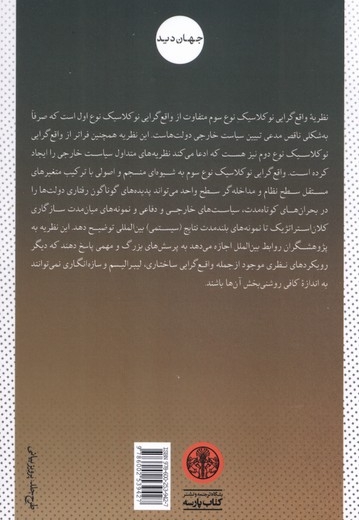 جهان دید
نظریهٔ واقع‌گرایی نوکلاسیک نوع سوم متفاوت از واقع‌گرایی نوکلاسیک نوع اول است که صرفاً
به‌شکلی ناقص مدعی تبیین سیاست خارجی دولت‌هاست. این نظریه همچنین فراتر از واقع‌گرایی
نوکلاسیک نوع دوم نیز هست که ادعا می‌کند نظریه‌های متداول سیاست خارجی را ایجاد
کرده است. واقع‌گرایی نوکلاسیک نوع سوم به شیوه‌ای منسجم و اصولی با ترکیب متغیرهای
مستقل سطح نظام و مداخله‌گر سطح واحد می‌تواند پدیده‌های گوناگون رفتاری دولت‌ها را
در بحران‌های کوتاه‌مدت، سیاست‌های خارجی و دفاعی و نمونه‌های میان‌مدت سازگاری
کلان‌استراتژیک تا نمونه‌های بلندمدت نتایج (سیستمی) بین‌المللی توضیح دهد. این نظریه به
پژوهشگران روابط بین‌الملل اجازه می‌دهد به پرسش‌های بزرگ و مهمی پاسخ دهند که دیگر
رویکردهای نظری موجود ازجمله واقع‌گرایی ساختاری، لیبرالیسم و سازه‌انگاری نمی‌توانند
به اندازهٔ کافی روشنی‌بخش آن‌ها باشند.
بنگاه ترجمه و نشر
کتاب پارسه
طرح جلد: پرویز بیانی